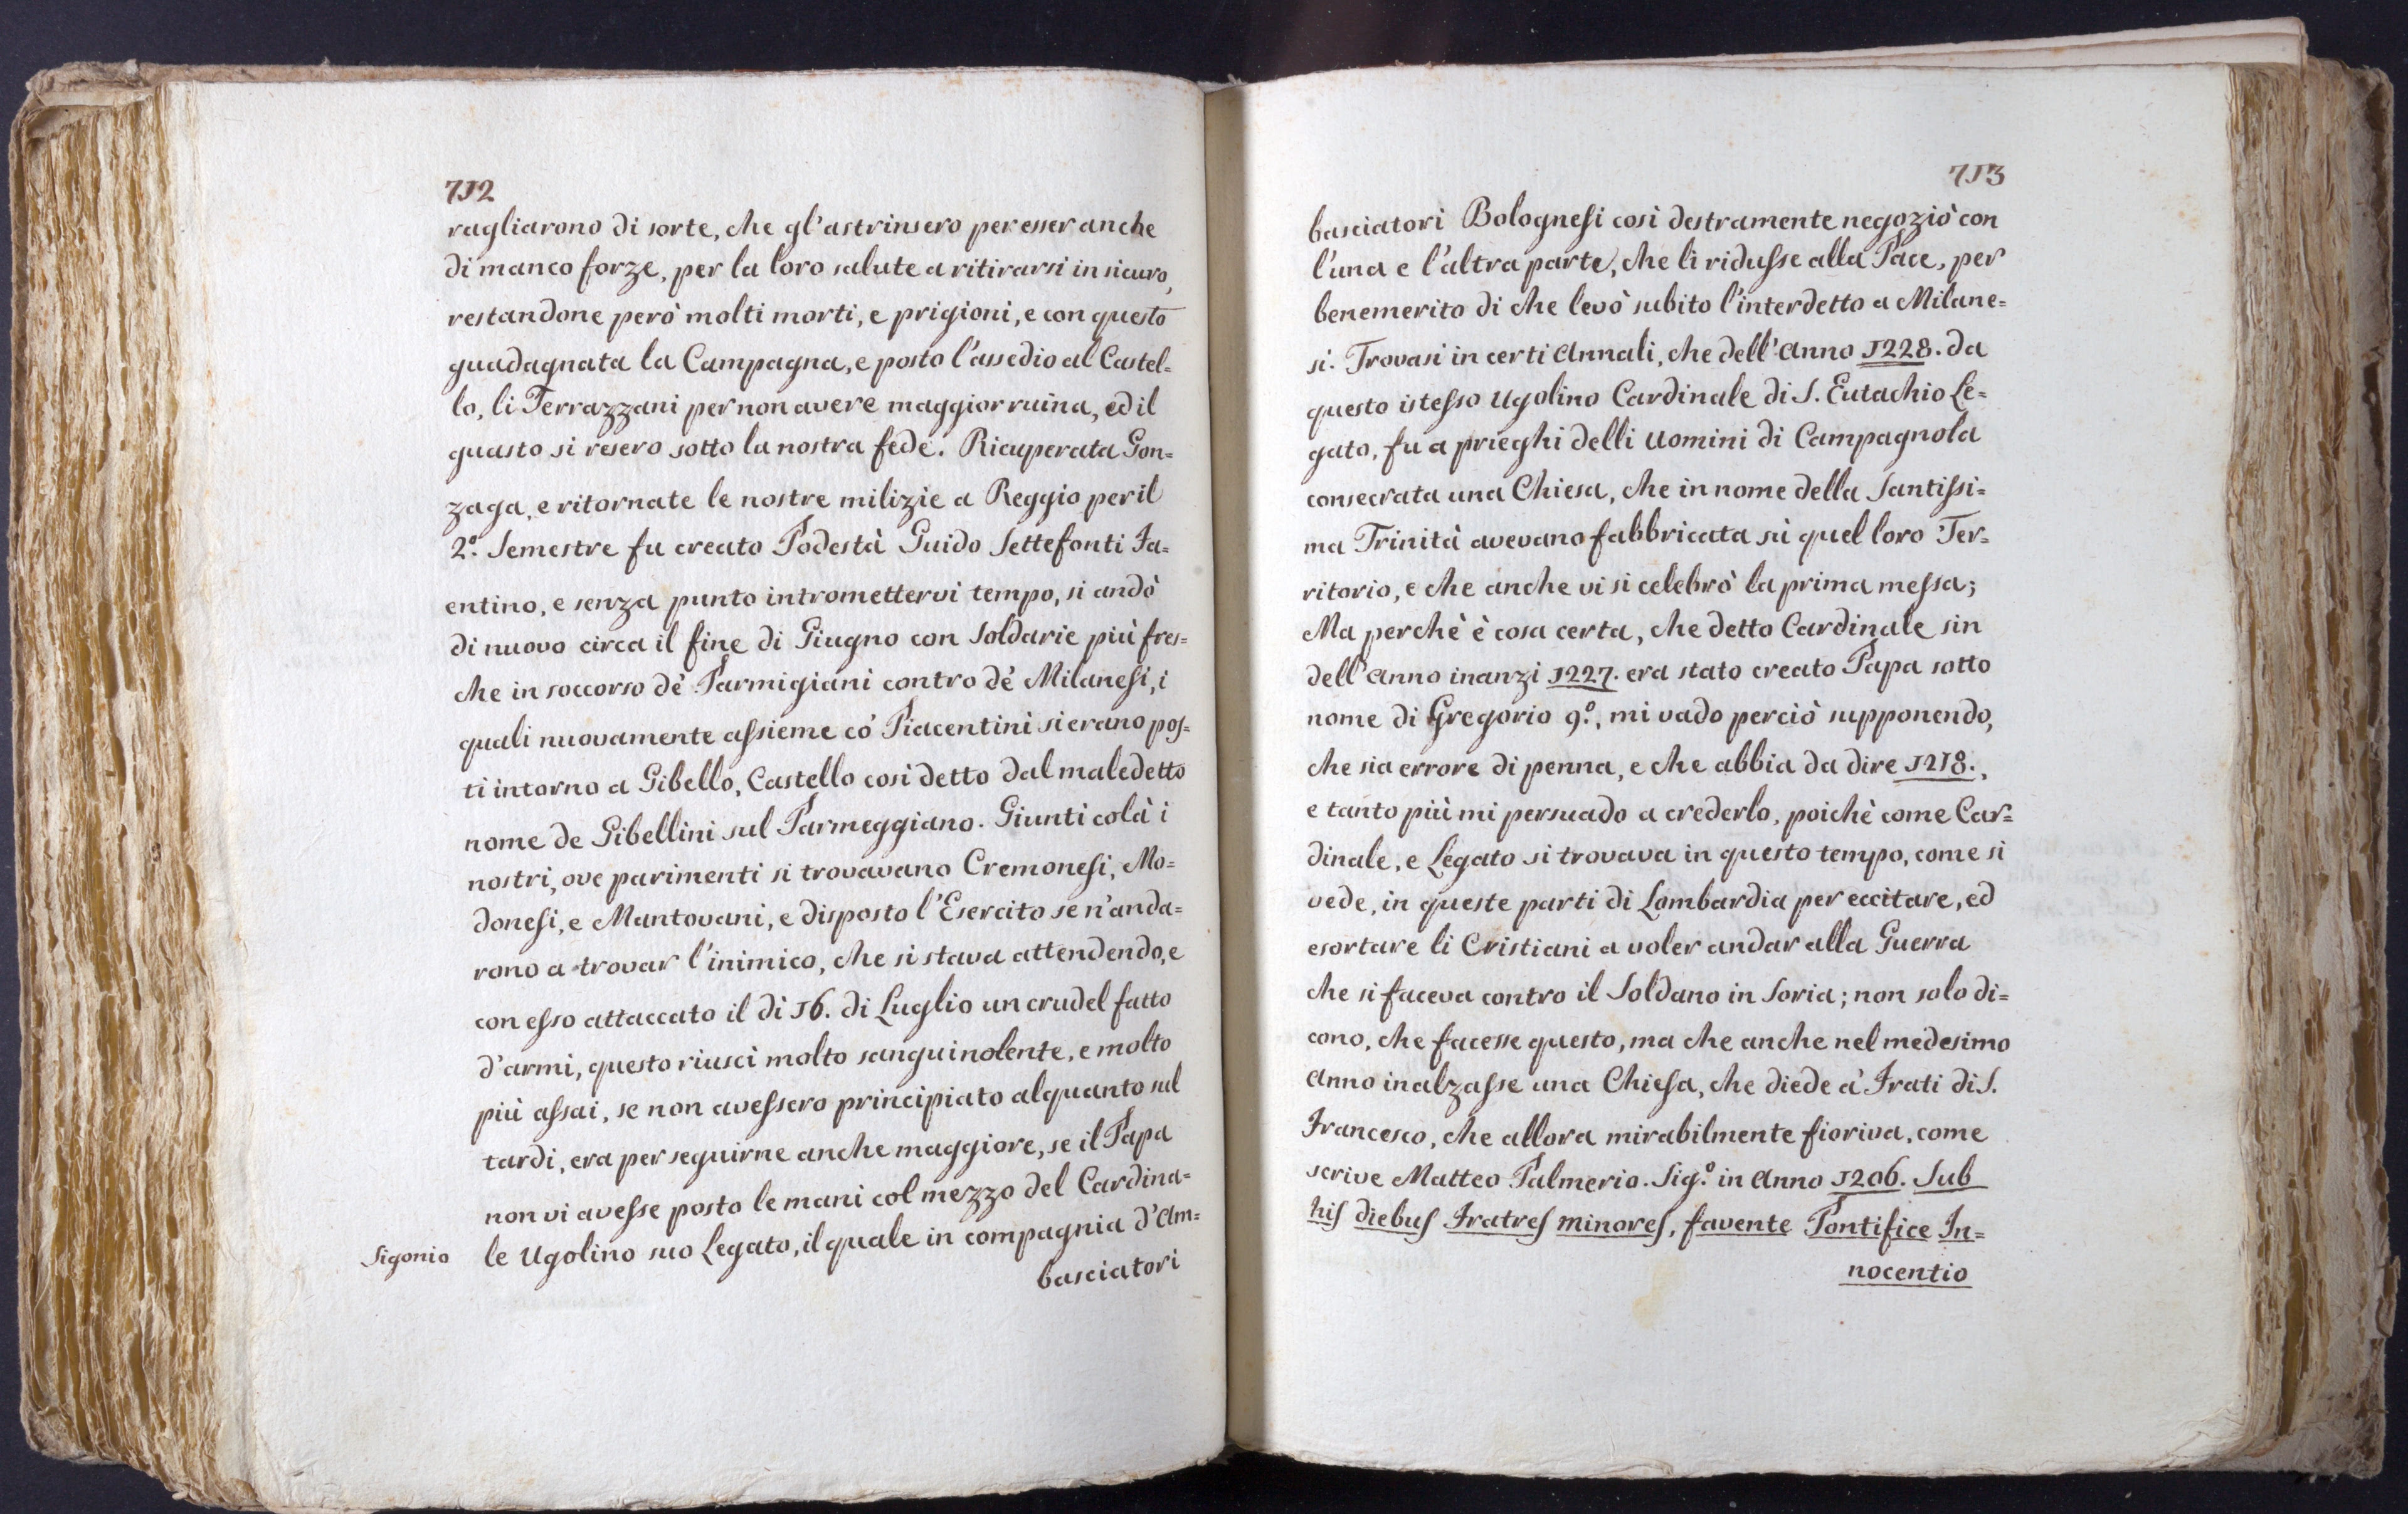 712
ragliarono di sorte, che gl'astrinsero per esser anche
di manco forze, per la loro salute a ritirarsi in sicuro,
restandone però molti morti, e prigioni, e con questo
guadagnata la Campagna, e posto l'assedio al Castel=
lo, li Terrazzani per non avere maggior ruina, ed il
guasto si resero sotto la nostra fede. Ricuperata Gon=
zaga, e ritornate le nostre milizie a Reggio per il
2.º Semestre fu creato Podestà Guido Settefonti Fa=
entino, e senza punto intromettervi tempo, si andò
di nuovo circa il fine di Giugno con Soldarie più fres=
che in soccorso dè Parmigiani contro dè Milanesi, i
quali nuovamente assieme cò Piacentini si erano pos=
ti intorno a Gibello, Castello così detto dal maledetto
nome de Gibellini sul Parmeggiano. Giunti colà i
nostri, ove parimenti si trovavano Cremonesi, Mo=
donesi, e Mantovani, e disposto l'Esercito se n'anda=
rono a trovar l'inimico, che si stava attendendo, e
con esso attaccato il dì 16. di Luglio un crudel fatto
d'armi, questo riuscì molto sanguinolente, e molto
più assai, se non avessero principiato alquanto sul
tardi, era per seguirne anche maggiore, se il Papa
non vi avesse posto le mani col mezzo del Cardina=
Sigonio le Ugolino suo Legato, il quale in compagnia d'Am=
basciatori
713
basciatori Bolognesi così destramente negoziò con
l'una e l'altra parte, che li ridusse alla Pace, per
benemerito di che levò subito l'interdetto a Milane=
si. Trovasi in certi Annali, che dell'Anno 1228. da
questo istesso Ugolino Cardinale di S. Eutachio Le=
gato, fu a prieghi delli Uomini di Campagnola
consecrata una Chiesa, che in nome della Santissi=
ma Trinità avevano fabbricata sù quel loro Ter=
ritorio, e che anche vi si celebrò la prima messa;
Ma perchè è cosa certa, che detto Cardinale sin
dell'Anno inanzi 1227. era stato creato Papa sotto
nome di Gregorio 9.º, mi vado perciò supponendo,
che sia errore di penna, e che abbia da dire 1218.,
e tanto più mi persuado a crederlo, poichè come Car=
dinale, e Legato si trovava in questo tempo, come si
vede, in queste parti di Lombardia per eccitare, ed
esortare li Cristiani a voler andar alla Guerra
che si faceva contro il Soldano in Soria; non solo di=
cono, che facesse questo, ma che anche nel medesimo
Anno inalzasse una Chiesa, che diede à Frati di S.
Francesco, che allora mirabilmente fioriva, come
scrive Matteo Palmerio. Sig.º in Anno 1206. Sub
his diebus Fratres minores, favente Pontifice In=
nocentio